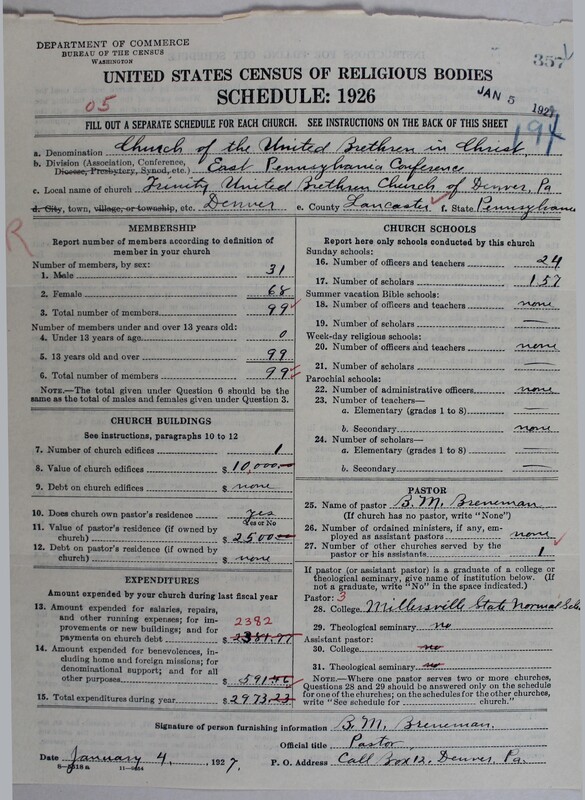 DEPARTMENT OF COMMERCE
BUREAU OF THE CENSUS
WASHINGTON
357
UNITED STATES CENSUS OF RELIGIOUS BODIES
SCHEDULE: 1926
JAN 5 1927
05
FILL OUT A SEPARATE SCHEDULE FOR EACH CHURCH. SEE INSTRUCTIONS ON THE BACK OF THIS SHEET
194
a. Denomination Church of the United Brethren in Christ
b. Division (Association, Conference, Diocese, Presbytery, Synod, etc.) East Pennsylvania Conference
c. Local name of church Trinity United Brethren Church of Denver, Pa
d. City, town, village, or township, etc. Denver e. County Lancaster f. State Pennsylvania
R
MEMBERSHIP
Report number of members according to definition of member in your church
Number of members, by sex:
1. Male 31
2. Female 68
3. Total number of members 99
Number of members under and over 13 years old:
4. Under 13 years of age 0
5. 13 years old and over 99
6. Total number of members 99
NOTE.—The total given under Question 6 should be the same as the total of males and females given under Question 3.
CHURCH BUILDINGS
See instructions, paragraphs 10 to 12
7. Number of church edifices 1
8. Value of church edifices $ 10,000.00
9. Debt on church edifices $ none
10. Does church own pastor's residence yes
Yes or No
11. Value of pastor's residence (if owned by church) $ 2500.00
12. Debt on pastor's residence (if owned by church) $ none
EXPENDITURES
Amount expended by your church during last fiscal year
13. Amount expended for salaries, repairs, and other running expenses; for improvements or new buildings; and for payments on church debt 2382 $ 2381.77
14. Amount expended for benevolences, including home and foreign missions; for denominational support; and for all other purposes $ 591.46
15. Total expenditures during year $ 2973.23
CHURCH SCHOOLS
Report here only schools conducted by this church
Sunday schools:
16. Number of officers and teachers 24
17. Number of scholars 157
Summer vacation Bible schools:
18. Number of officers and teachers none
19. Number of scholars —
Week-day religious schools:
20. Number of officers and teachers none
21. Number of scholars —
Parochial schools:
22. Number of administrative officers none
23. Number of teachers—
a. Elementary (grades 1 to 8) —
b. Secondary none
24. Number of scholars—
a. Elementary (grades 1 to 8) —
b. Secondary —
PASTOR
25. Name of pastor B. M. Breneman
(If church has no pastor, write "None")
26. Number of ordained ministers, if any, employed as assistant pastors none
27. Number of other churches served by the pastor or his assistants 1
If pastor (or assistant pastor) is a graduate of a college or theological seminary, give name of institution below. (If not a graduate, write "No" in the space indicated.)
Pastor: 3
28. College Millersville State Normal Sch.
29. Theological seminary no
Assistant pastor:
30. College no
31. Theological seminary no
NOTE.—Where one pastor serves two or more churches, Questions 28 and 29 should be answered only on the schedule for one of the churches; on the schedules for the other churches, write "See schedule for church."
Signature of person furnishing information B. M. Breneman.
Official title Pastor
Date January 4, 1927. P. O. Address Call Box 12, Denver, Pa.